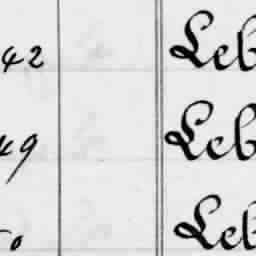 42 Leb
49 Leb
0 Leb